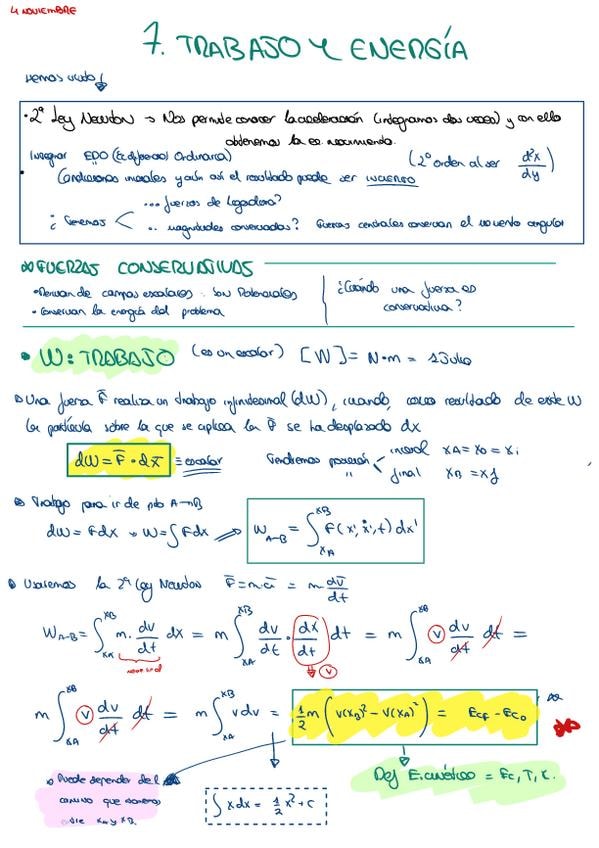 4 NOVIEMBRE
7. TRABAJO Y ENERGÍA
Hemos visto
· 2ª Ley Newton → Nos permite conocer la aceleración (integramos dos veces) y con ello
obtenemos la ec. movimiento.
Integrar EDO (Ec diferencial Ordinaria) (2º orden al ser d²x/dy)
Condiciones iniciales y aún así el resultado puede ser incierto
... fuerzas de ligadura?
¿Tenemos < .. magnitudes conservadas? Fuerzas centrales conservan el momento angular
FUERZAS CONSERVATIVAS
• Derivan de campos escalares : son Potenciales
• Conservan la energía del problema
¿Cuándo una fuerza es
conservativa?
• W: TRABAJO (es un escalar) [W] = N·m = 1 Julio
Una fuerza F̄ realiza un trabajo infinitesimal (dW), cuando, como resultado de este W
la partícula sobre la que se aplica la F̄ se ha desplazado dx
dW = F̄ · dx̄ = escalar Tendremos posición < inicial xA = x0 = xi
" final xB = xf
Trabajo para ir de pto A→B
dW = Fdx → W = ∫ Fdx ⇒ W A→B = ∫ xA xB F(x', ẋ', t) dx'
Usaremos la 2ª Ley Newton F̄ = m·ā = m · dv̄/dt
W A→B = ∫ xA xB m · dv/dt dx = m ∫ xA xB dv/dt · dx/dt dt = m ∫ xA xB v dv/dt dt =
v
m ∫ xA xB v dv/dt dt = m ∫ xA xB v dv = 1/2 m (v(xB)² - v(xA)²) = Ecf - Ec0
Def E. cinética = Ec, T, K.
Puede depender del
camino que tomemos
entre xA y xB.
∫ x dx = 1/2 x² + C